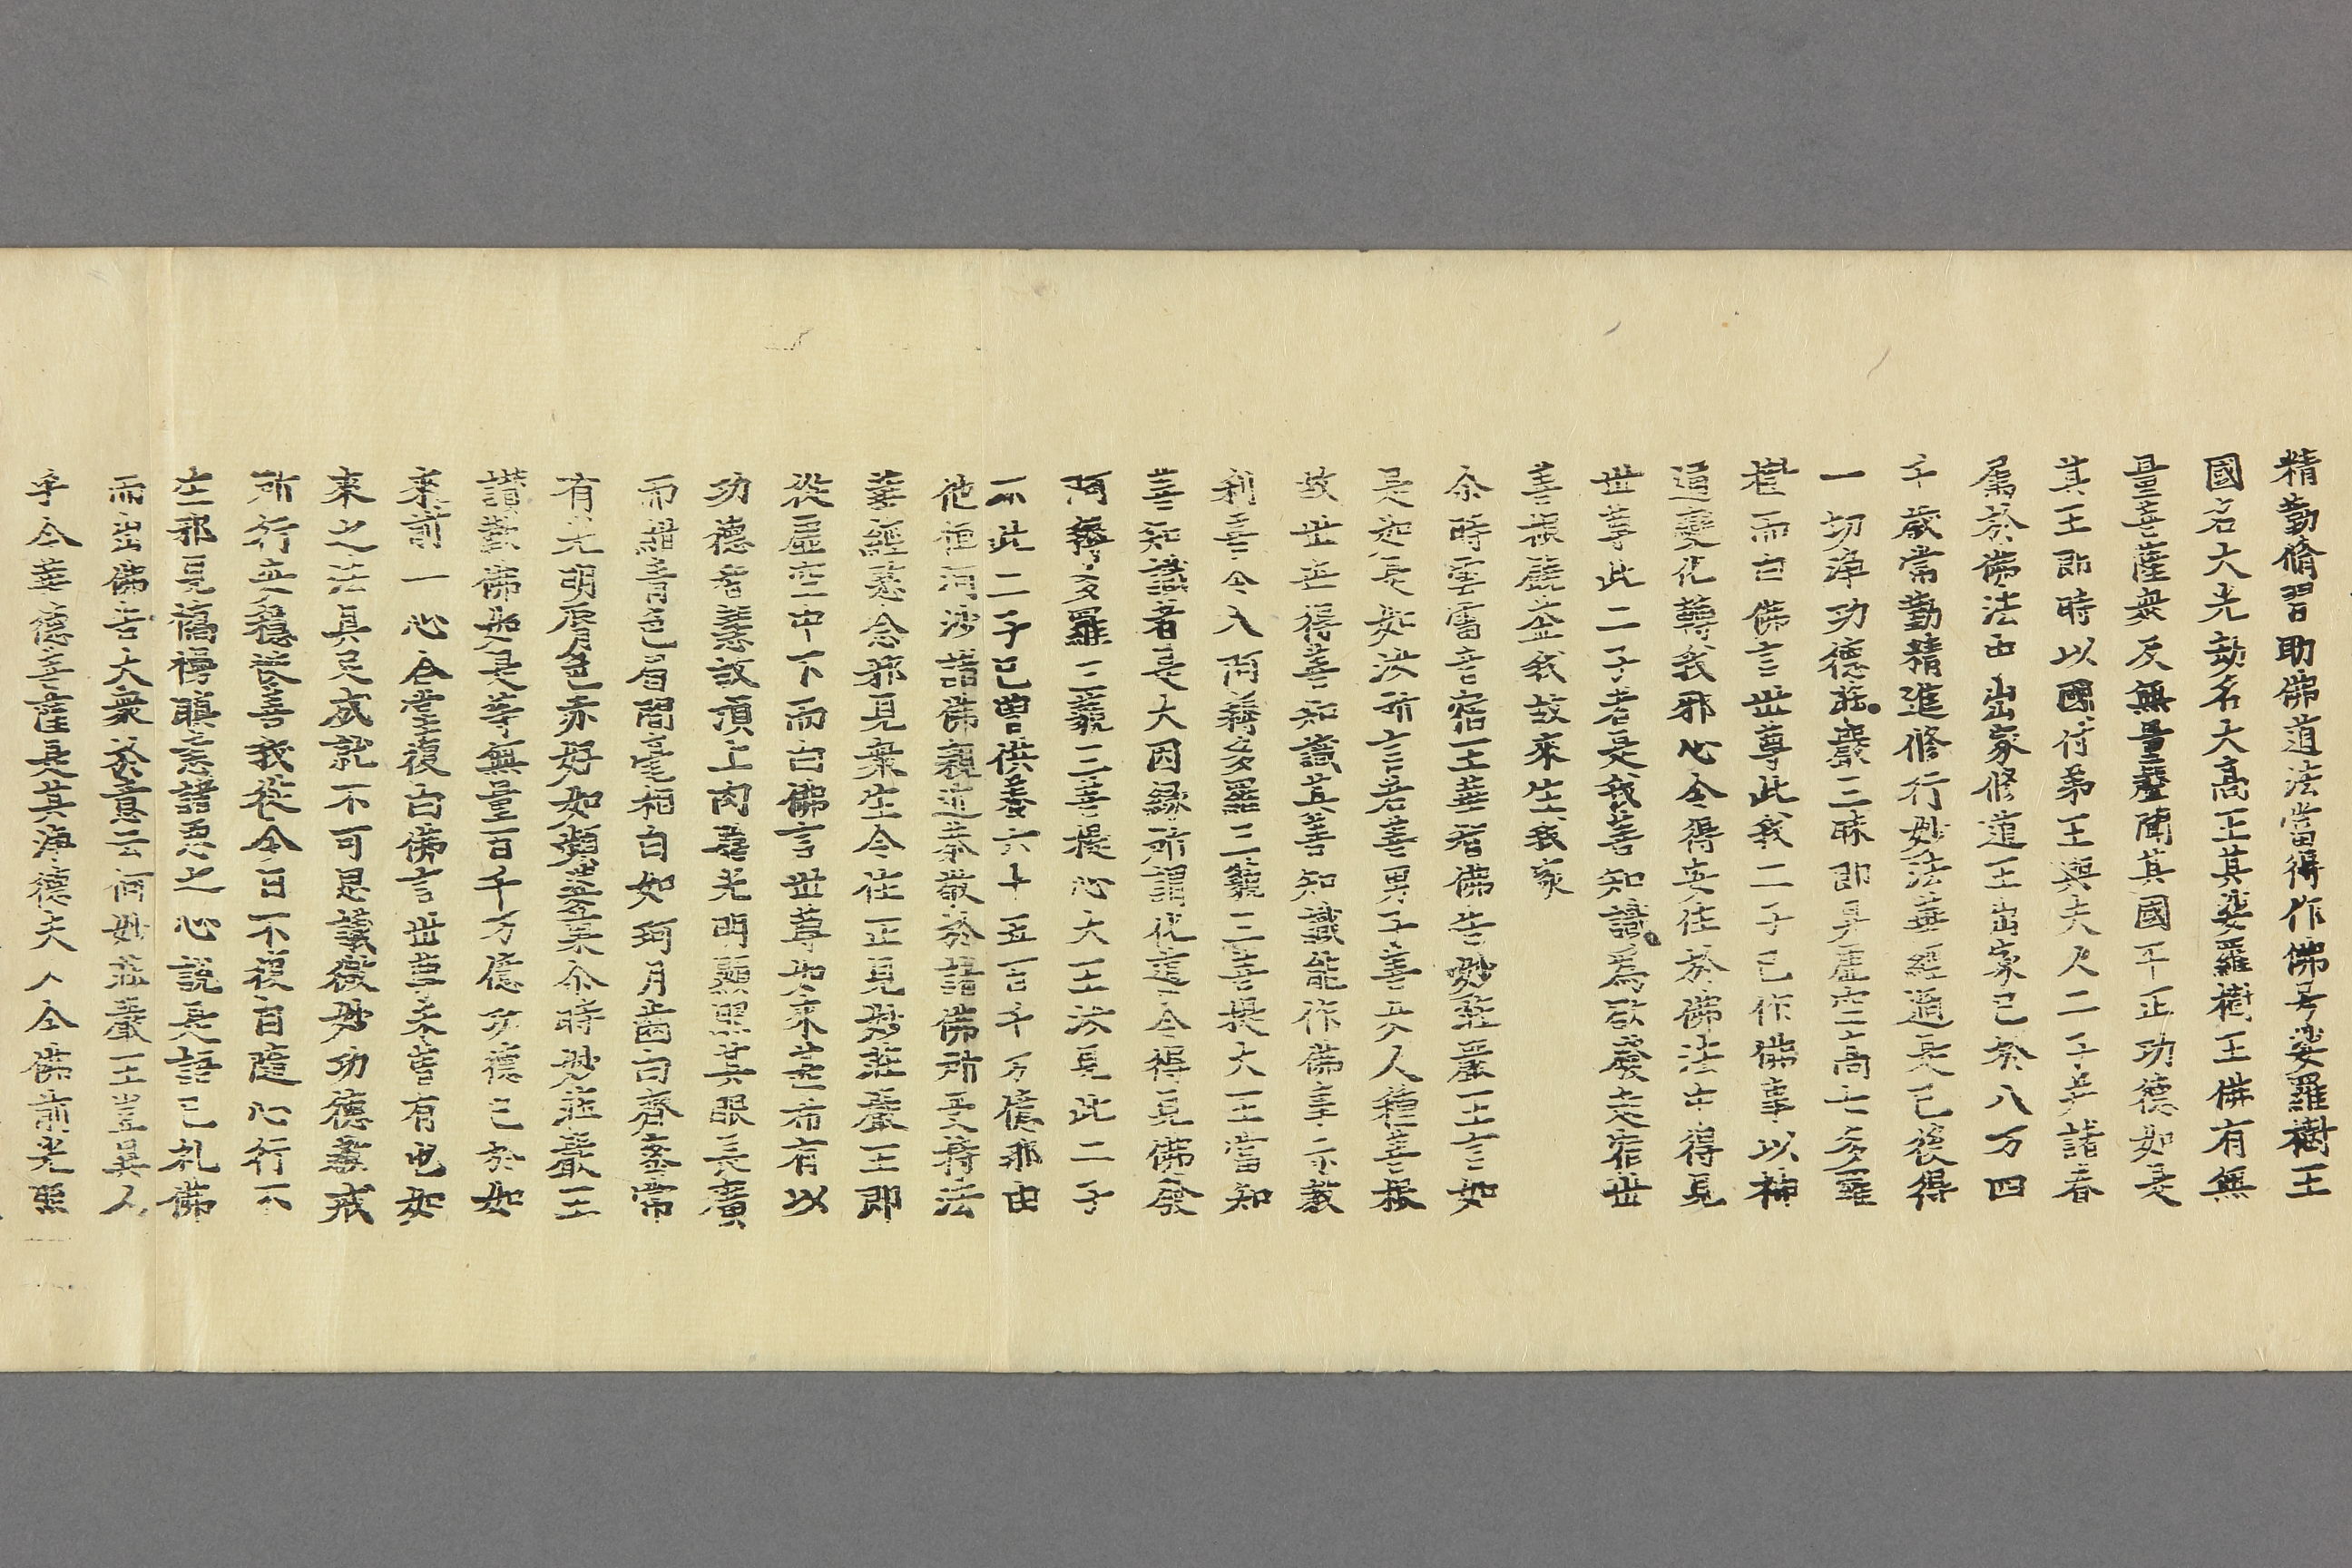 精勤脩習助佛道法當得作佛号娑羅樹王
國名大光劫名大高王其娑羅樹王佛有無
量菩薩衆及無量聲聞其國平正功德如是
其王即時以國付弟王與夫人二子并諸眷
属於佛法中出家修道王出家已於八万四
千歳常勤精進修行妙法華經過是已後得
一切淨功德莊嚴三昧即昇虚空高七多羅
樹而白佛言世尊此我二子已作佛事以神
通變化轉我邪心令得安住於佛法中得見
世尊此二子者是我善知識爲欲發起宿世
善根饒益我故來生我家
尒時雲雷音宿王華智佛告妙莊嚴王言如
是如是如汝所言若善男子善女人種善根
故世世得善知識其善知識能作佛事示教
利喜令入阿耨多羅三藐三菩提大王當知
善知識者是大因縁所謂化導令得見佛發
阿耨多羅三藐三菩提心大王汝見此二子
不此二子已曽供養六十五百千万億那由
他恒河沙諸佛親近恭敬於諸佛所受持法
華經愍念邪見衆生令住正見妙莊嚴王即
從虚空中下而白佛言世尊如來甚希有以
功德智慧故頂上肉髻光明顯照其眼長廣
而紺青色眉間毫相白如珂月齒白齊密常
有光明脣色赤好如頻婆菓尒時妙莊嚴王
讃歎佛如是等無量百千万億功德已於如
來前一心合掌復白佛言世尊未曽有也如
來之法具足成就不可思議微妙功德教戒
所行安穩快善我從今日不復自隨心行不
生邪見憍慢瞋恚諸悪之心說是語已礼佛
而出佛告大衆於意云何妙莊嚴王豈異人
乎今華德菩薩是其淨德夫人今佛前光照